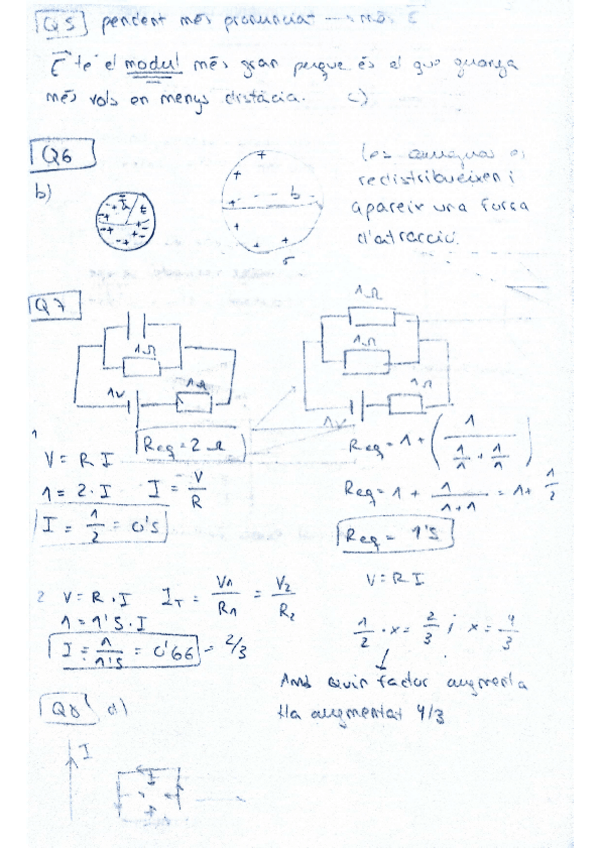 Q5 pendent més pronunciat → més E
E té el modul més gran perque és el que guanya
més vols en menys distàcia. c)
Q6
b)
+ +
b
+ + +
σ
es
redistribueixen i
apareix una força
d'atracció.
Q7
1Ω
1Ω
1V
1Ω
1Ω
1Ω
1V
1Ω
Req = 2Ω
1
V = R I
1 = 2·I I = V/R
I = 1/2 = 0'5
Req = 1 + (1/(1/1 + 1/1))
Req = 1 + 1/(1+1) = 1 + 1/2
Req = 1'5
2 V = R·I I_T = V1/R1 = V2/R2
1 = 1'5·I
I = 1/1'5 = 0'66 = 2/3
V = R I
1/2 · x = 2/3 ; x = 4/3
Amb quin factor augmenta
Ha augmentat 4/3
Q8 d)
I
I